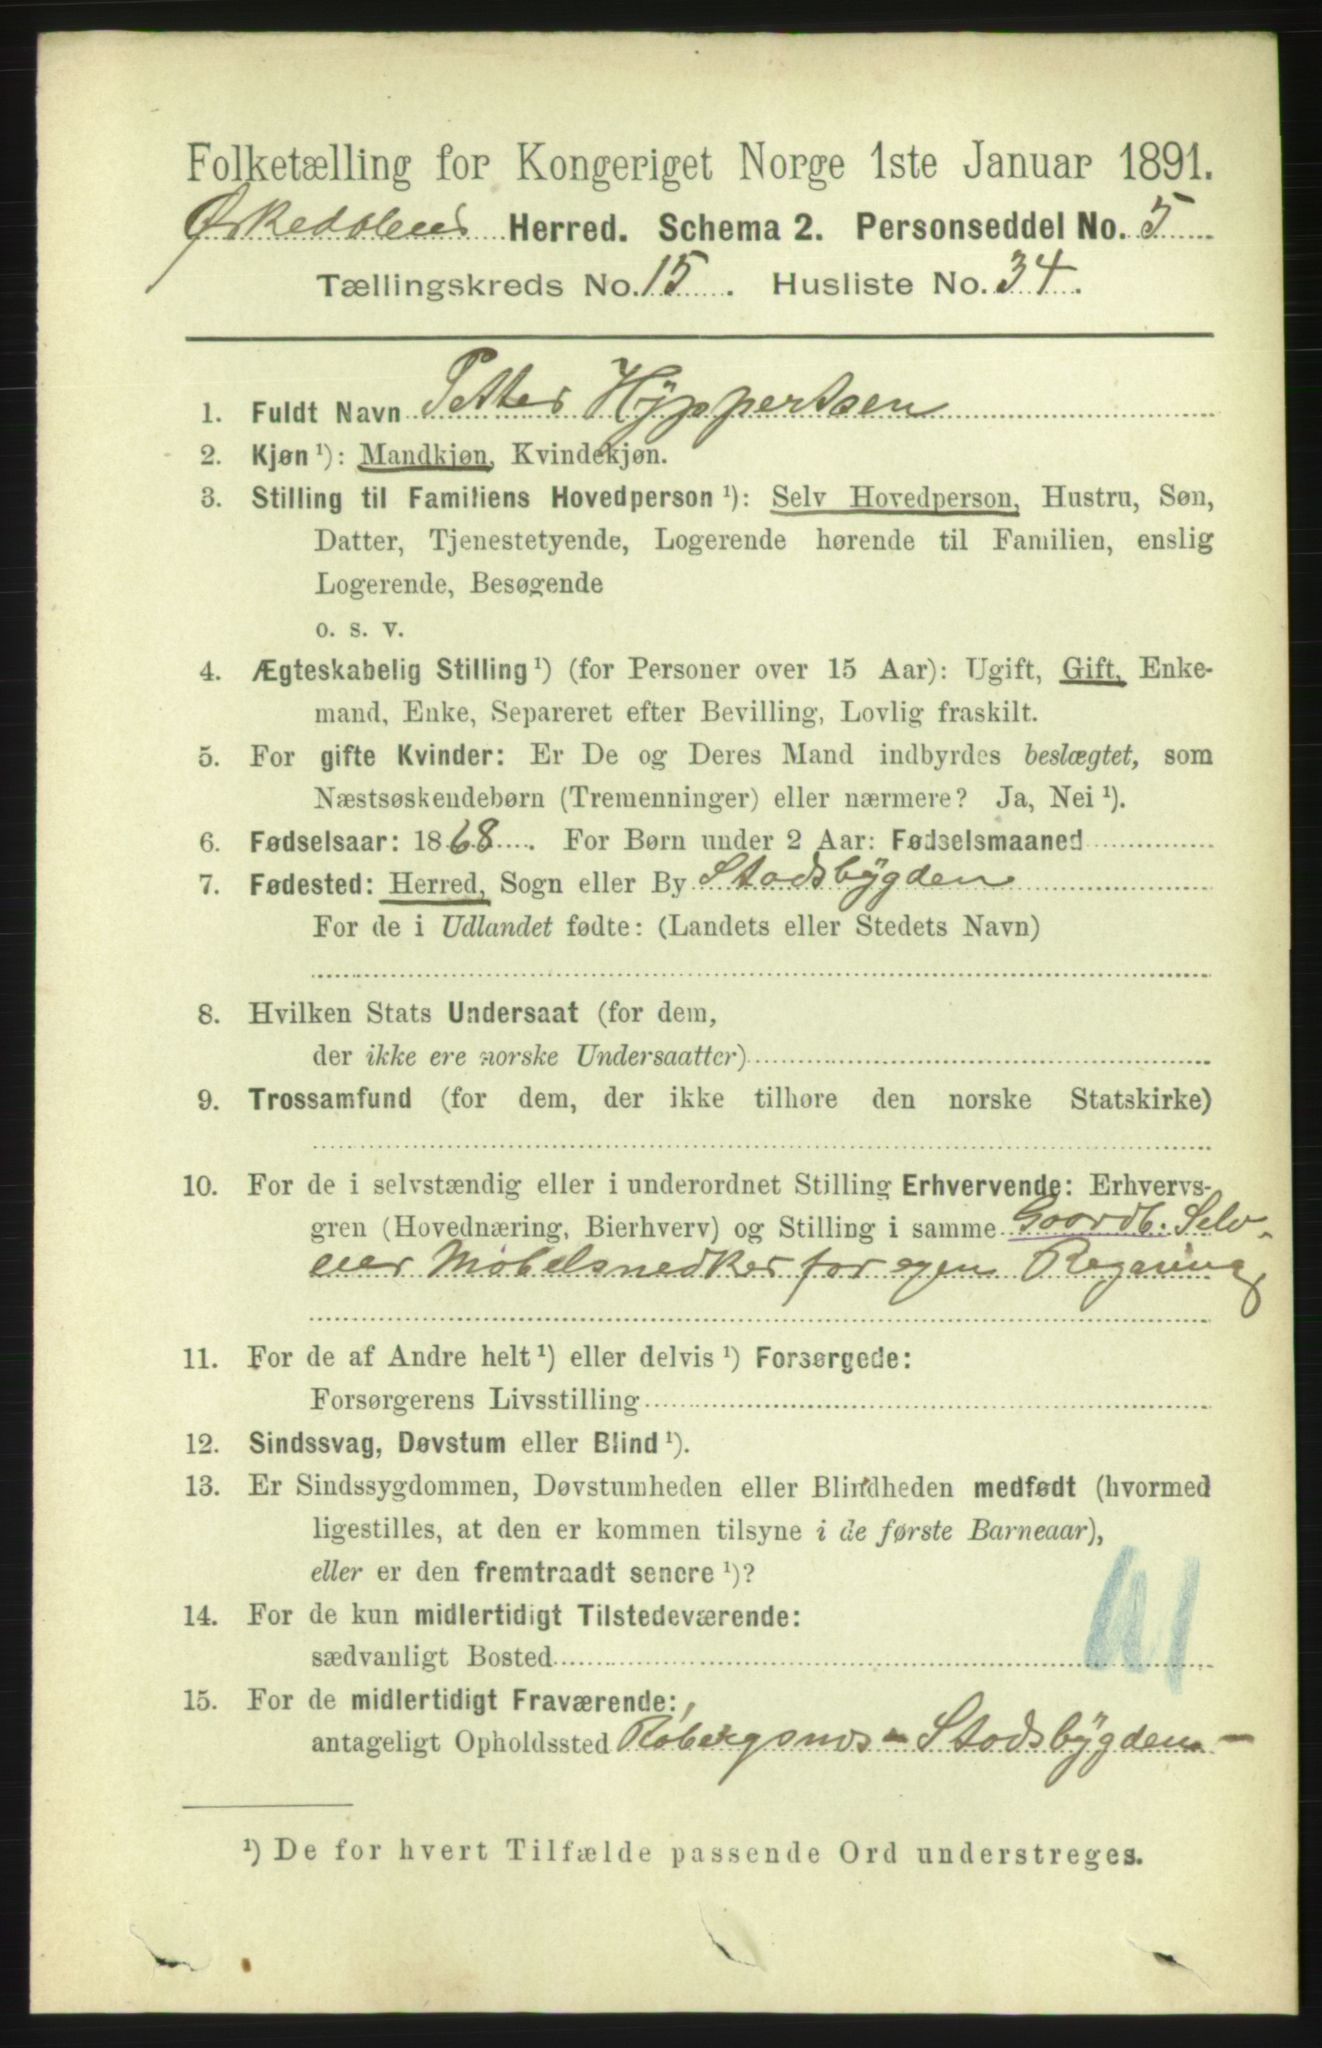 Folketælling for Kongeriget Norge 1ste Januar 1891.
Ørkedalens Herred. Schema 2. Personseddel No. 5
Tællingskreds No. 15. Husliste No. 34.
1. Fuldt Navn Petter Hyppertsen
2. Kjøn ¹): Mandkjøn, Kvindekjøn.
3. Stilling til Familiens Hovedperson ¹): Selv Hovedperson, Hustru, Søn,
Datter, Tjenestetyende, Logerende hørende til Familien, enslig
Logerende, Besøgende
o. s. v.
4. Ægteskabelig Stilling ¹) (for Personer over 15 Aar): Ugift, Gift, Enke-
mand, Enke, Separeret efter Bevilling, Lovlig fraskilt.
5. For gifte Kvinder: Er De og Deres Mand indbyrdes beslægtet, som
Næstsøskendebørn (Tremenninger) eller nærmere? Ja, Nei ¹).
6. Fødselsaar: 1868. For Børn under 2 Aar: Fødselsmaaned
7. Fødested: Herred, Sogn eller By Stadsbygden
For de i Udlandet fødte: (Landets eller Stedets Navn)
8. Hvilken Stats Undersaat (for dem,
der ikke ere norske Undersaatter)
9. Trossamfund (for dem, der ikke tilhøre den norske Statskirke)
10. For de i selvstændig eller i underordnet Stilling Erhvervende: Erhvervs-
gren (Hovednæring, Bierhverv) og Stilling i samme Gaardb. Selv-
eier Møbelsnedker for egen Regning
11. For de af Andre helt ¹) eller delvis ¹) Forsørgede:
Forsørgerens Livsstilling
12. Sindssvag, Døvstum eller Blind ¹).
13. Er Sindssygdommen, Døvstumheden eller Blindheden medfødt (hvormed
ligestilles, at den er kommen tilsyne i de første Barneaar),
eller er den fremtraadt senere ¹)?
14. For de kun midlertidigt Tilstedeværende:
sædvanligt Bosted
15. For de midlertidigt Fraværende:
antageligt Opholdssted Røbergsnes - Stadsbygden -
¹) De for hvert Tilfælde passende Ord understreges.